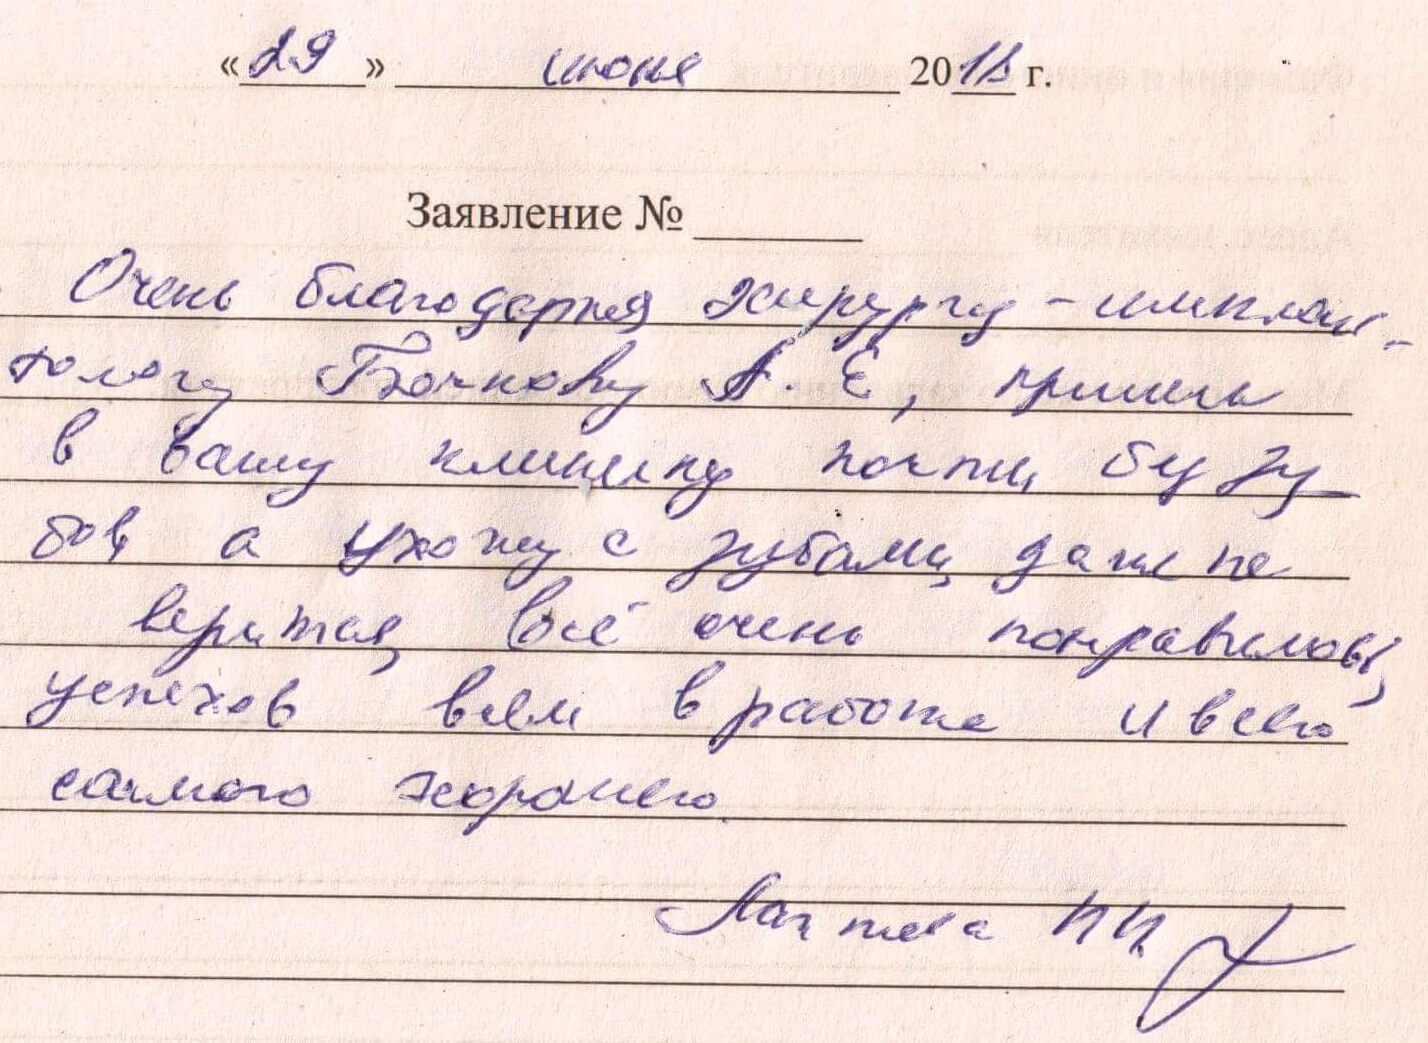 «29» июня 2018 г.
Заявление №
Очень благодарна хирургу-имплан-
тологу Бочкову А.Е, пришла
в вашу клинику почти без зу
бов а ухожу с зубами даже не
верится, всё очень понравилось,
успехов всем в работе и всего
самого хорошего